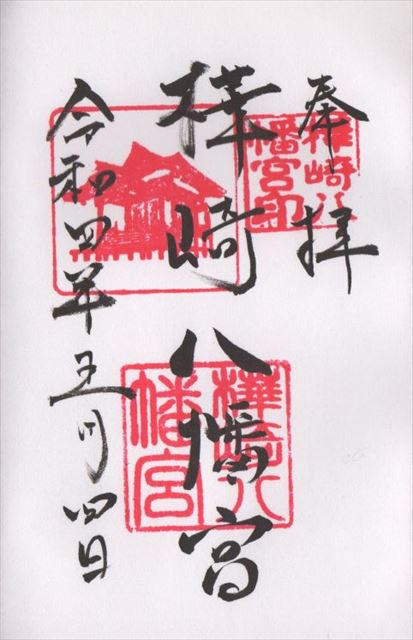 奉拝
樺崎八幡宮
令和四年五月四日
樺崎八
幡宮印
樺崎八
幡宮